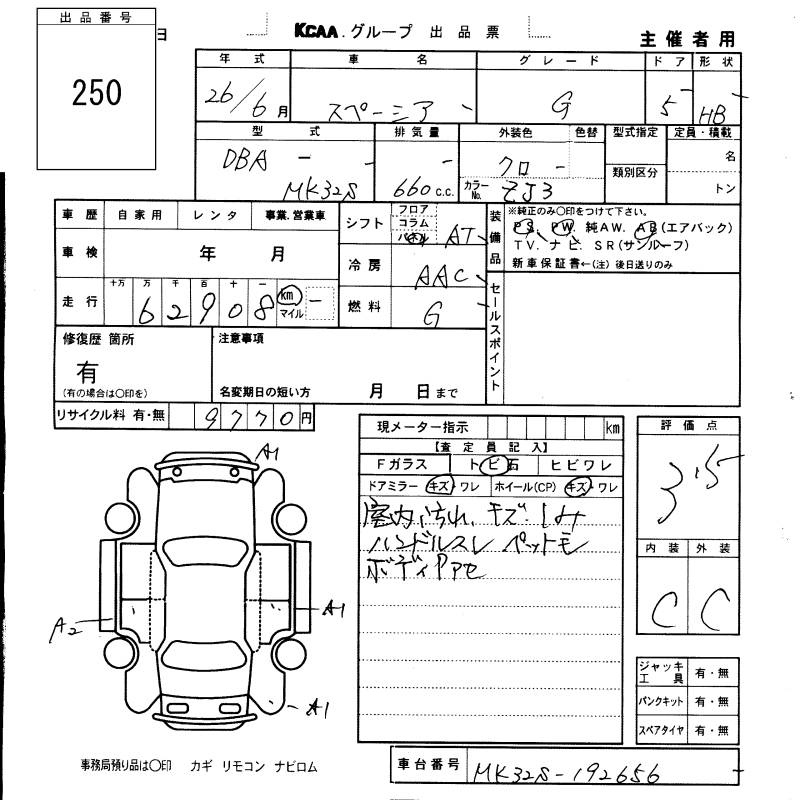 出品番号
250
日
KCAA.グループ 出品票
主催者用
年式 車名 グレード ドア 形状
26/6月 スペーシア G 5 HB
型式 排気量 外装色 色替 型式指定 定員・積載
DBA - クロ 名
MK32S 660c.c. カラーNo. ZJ3 類別区分 トン
車歴 自家用 レンタ 事業.営業車
車検 年 月
走行 十万 万 千 百 十 一
62908 km マイル
シフト フロア コラム パネル AT
冷房 AAC
燃料 G
装備品
※純正のみ○印をつけて下さい。
PS、PW、純AW、AB(エアバック)
TV、ナビ、SR(サンルーフ)
新車保証書←(注)後日送りのみ
セールスポイント
修復歴 箇所
有
(有の場合は○印を)
注意事項
名変期日の短い方 月 日まで
リサイクル料 有・無 9770円
現メーター指示 km
【査定員記入】
Fガラス トビ石 ヒビワレ
ドアミラー キズ・ワレ ホイール(CP) キズ・ワレ
室内汚れ、キズ、シミ
ハンドルスレ ペットモ
ボディ
評価点
3.5
内装 外装
C C
A1
A2
A1
A1
ジャッキ工具 有・無
パンクキット 有・無
スペアタイヤ 有・無
事務局預り品は○印 カギ リモコン ナビロム
車台番号 MK32S-192656